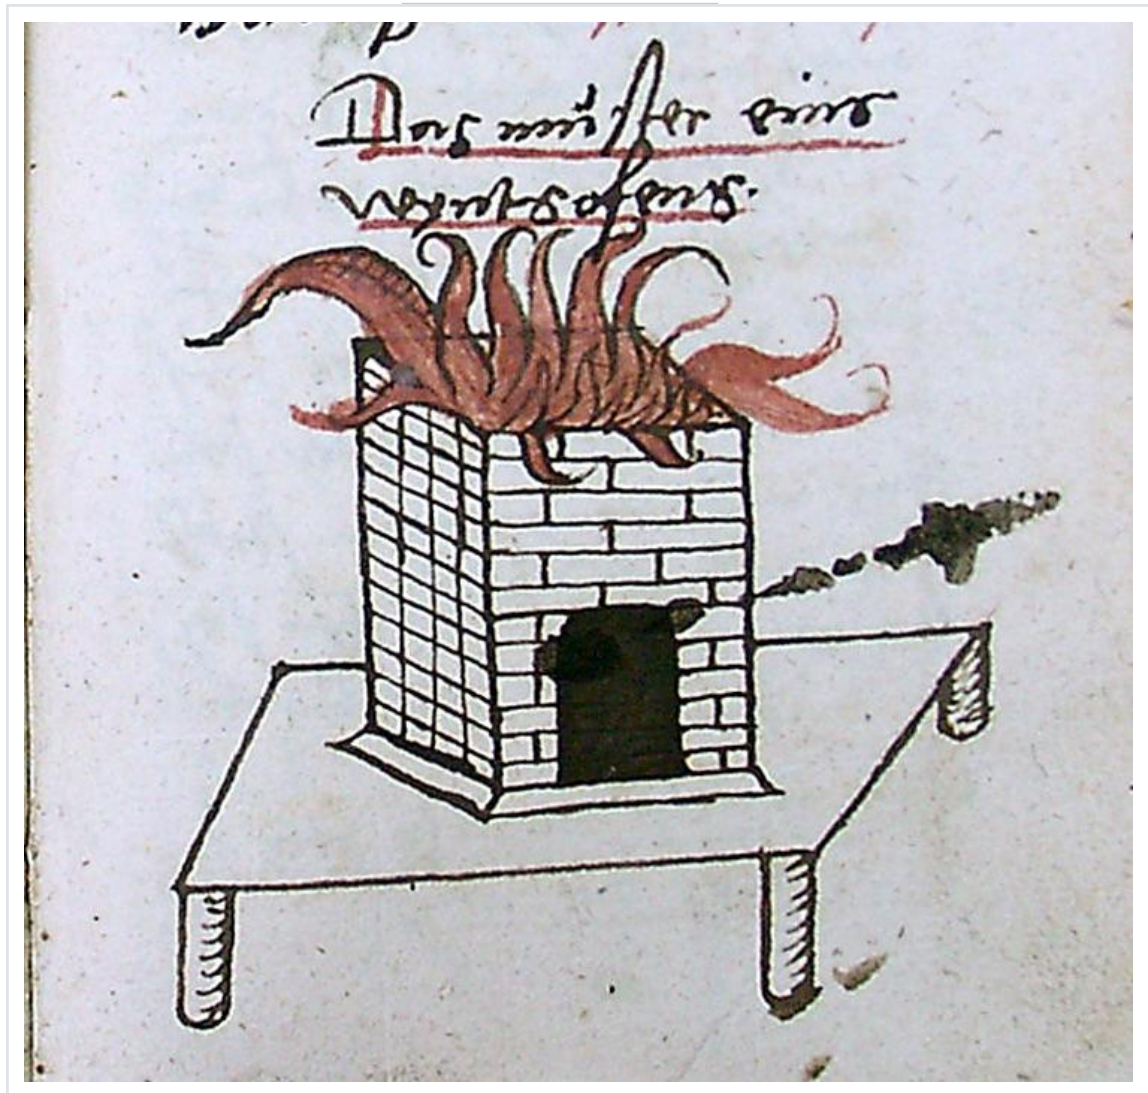 Das müster eins
weyntgsofens.